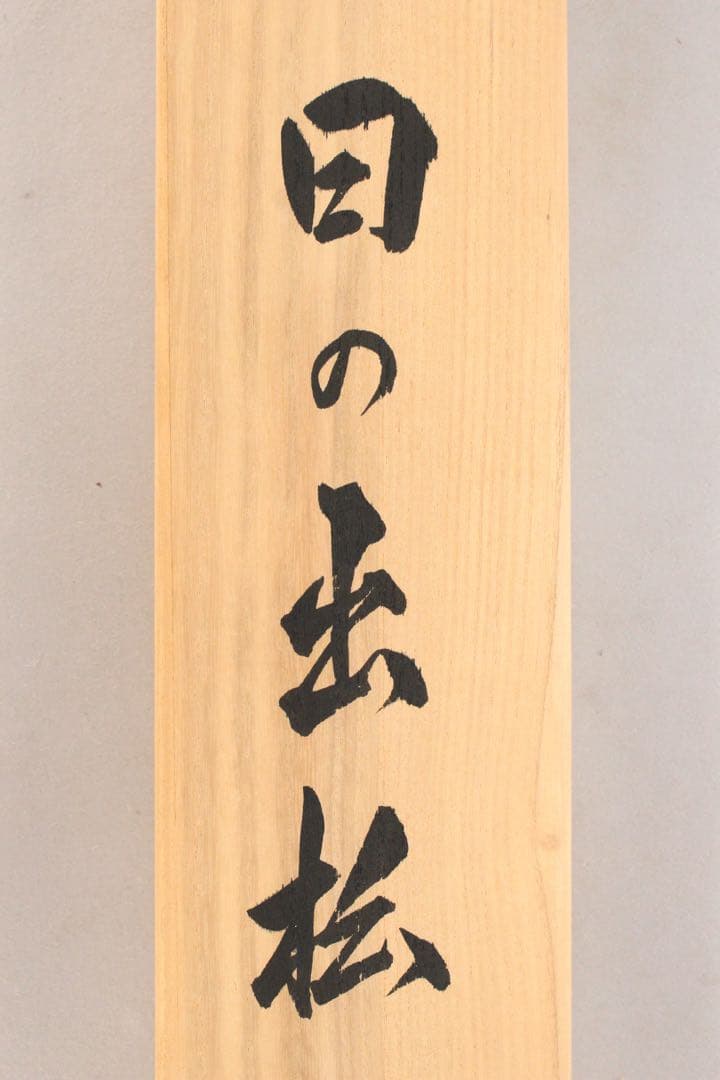 日の出松